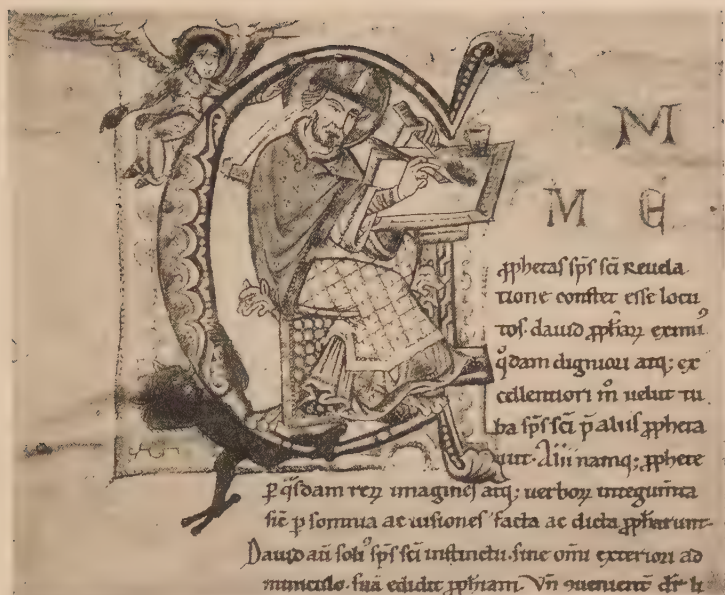 C M
M E
ꝓphetas sp̄s sc̄i reuela
tione constet esse locu
tos· dauid ꝓph̄aꝝ eximiꝰ
q̊dam digniori atq; ex
cellentiori m̊ uelut tu
ba sp̄s sc̄i p̄ aliis ꝓpheta
uit· Alii namq; ꝓphete
ꝑ q̄sdam reꝝ imagines atq; uerboꝝ integumta
sic̄ ꝑ somnia ac uisiones facta ac dicta ꝓph̄arunt·
Dauid aū soliꝰ sp̄s sc̄i instinctu sine om̄i exteriori ad
miniculo· suā edidit ꝓph̄iam· Vn̄ ꝯuenient̄ dr̄ li